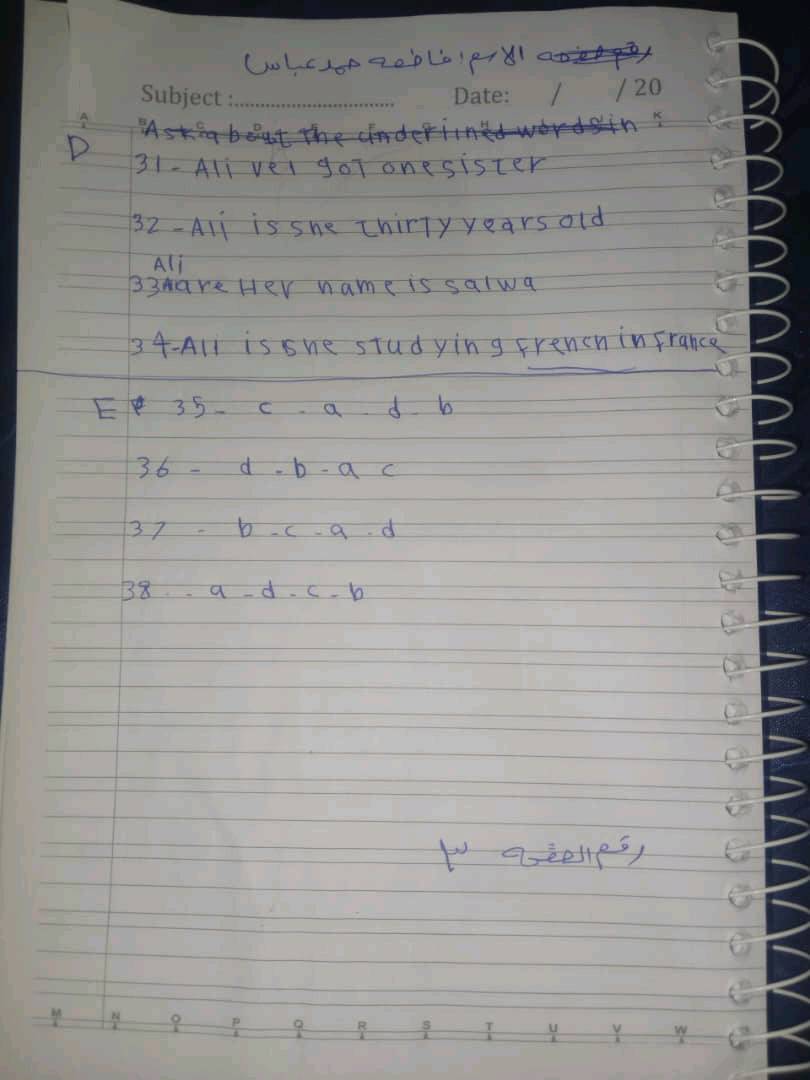 الاسم: فاطمه حمد عباس
Subject :............................... Date: / / 20
A B C D E F G H K
Ask about the underlined words in
D
31- Ali vei got one sister
32 - Ali is she thirty years old
Ali
33 are Her name is salwa
34-Ali is she studying french in france
E 35 - c - a - d - b
36 - d - b - a c
37 - b - c - a - d
38 - - a - d - c - b
رقم الصفحه ٣
M N O P Q R S T U V W